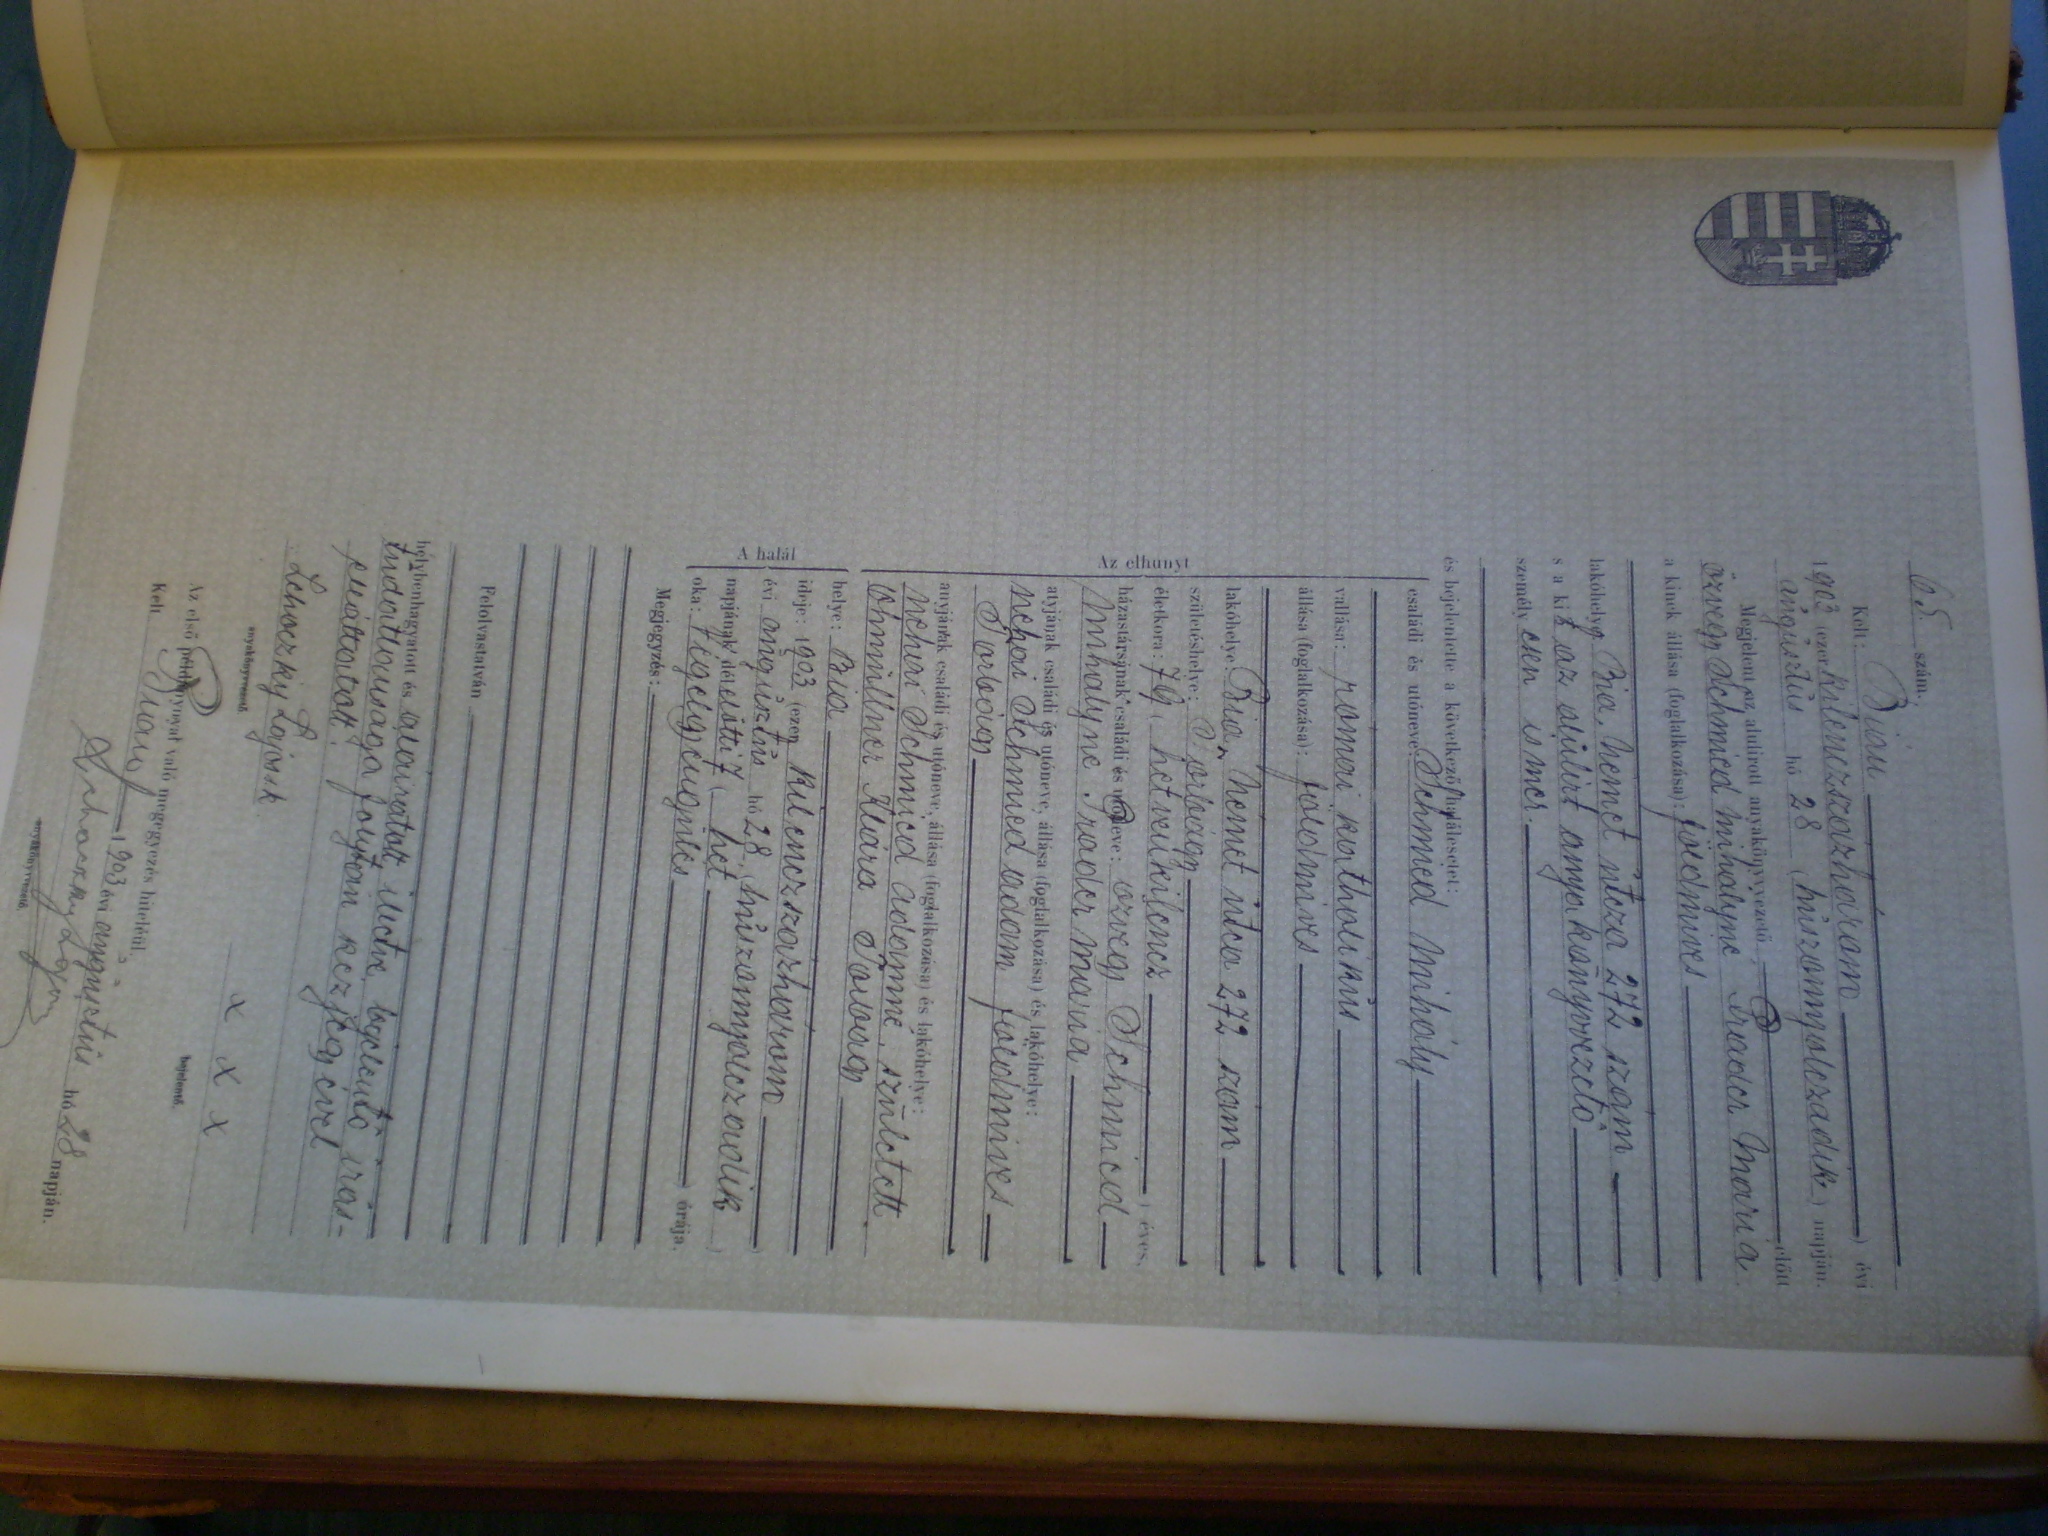 65. szám.
Kelt: Bián
1903 (ezer kilenczszázhárom) évi
augusztus hó 28 (huszonnyolczadik) napján.
Megjelent az alulirott anyakönyvvezető előtt
özvegy Schmied Mihályné Trader Mária
a kinek állása (foglalkozása): földmives
lakóhelye Bia, német utcza 272 szám
s a kit az alulirt anyakönyvvezető
személyesen ismer.
és bejelentette a következő halálesetet:
Az elhunyt
családi és utóneve: Schmied Mihály
vallása: romai katholikus
állása (foglalkozása): földmives
lakóhelye: Bia, német utca 272 szám
születéshelye: Torbágy
életkora: 79 (hetvenkilencz) éves.
házastársának családi és utóneve: özvegy Schmied
Mihályné Trader Mária
atyjának családi és utóneve, állása (foglalkozása) és lakóhelye:
néhai Schmied Ádám földmives
Torbágy
anyjának családi és utóneve, állása (foglalkozása) és lakóhelye:
néhai Schmied Ádámné, született
Klára Torbágy
A halál
helye: Bia
ideje: 1903 (ezer kilenczszázhárom
évi augusztus hó 28, huszonnyolczadik)
napjának délelőtti 7 (hét) órája.
oka: végelgyengülés
Megjegyzés:
Felolvastatván
helybenhagyatott és aláiratott, illetve bejelentő irás-
tudatlansága folytán kézjegyével
elláttatott.
Lehoczky Lajos
anyakönyvvezető.
x x x
bejelentő.
Az első példánynyal való megegyezés hiteléül.
Kelt Bián, 1903 évi augusztus hó 28 napján.
Lehoczky Lajos
anyakönyvvezető.